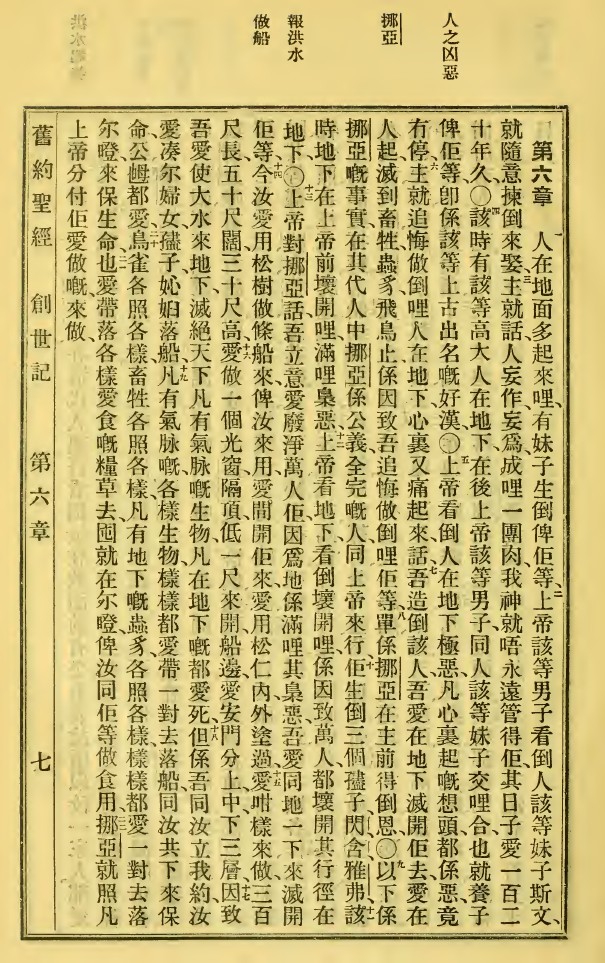 人之凶惡
挪亞
報洪水
做船
第六章 人在地面多起來哩、有妹子生倒俾佢等、二上帝該等男子看倒人該等妹子斯文、
就隨意揀倒來娶、三主就話人妄作妄爲成哩一團肉、我神就唔永遠管得佢、其日子愛一百二
十年久、〇四該時有該等高大人在地下、在後上帝該等男子同人該等妹子交哩合也、就養子
俾佢等、卽係該等上古出名嘅好漢、〇五上帝看倒人在地下極惡、凡心裏起嘅想頭都係惡、竟
冇停、六主就追悔做倒哩人在地下、心裏又痛起來、七話、吾造倒該人、吾愛在地下滅開佢去、愛在
人起、滅到畜牲蟲豸飛鳥止、係因致吾追悔做倒哩佢等、八單係挪亞在主前得倒恩、〇九以下係
挪亞嘅事實、在其代人中、挪亞係公義全完嘅人、同上帝來行、十佢生倒三個孻子、閃、含、雅弗、十一該
時地下在上帝前壞開哩、滿哩梟惡、十二上帝看地下、看倒壞開哩、係因致萬人都壞開其行徑在
地下、〇十三上帝對挪亞話、吾立意愛廢淨萬人、佢因爲地係滿哩其梟惡、吾愛同地一下來滅開
佢等、十四今汝愛用松樹做條船來、俾汝來用、愛間開佢來、愛用松仁內外塗過、十五愛咁樣來做、三百
尺長、五十尺闊、三十尺高、十六愛做一個光窗、隔頂低一尺來開、船邊愛安門、分上中下三層、十七因致
吾愛使大水來地下、滅絕天下凡有氣脉嘅生物、凡在地下嘅都愛死、十八但係吾同汝立我約、汝
愛凑尔婦女孻子㚢婦落船、十九凡有氣脉嘅各樣生物、樣樣都愛帶一對去落船、同汝共下來保
命、公乸都愛、二十鳥雀各照各樣、畜牲各照各樣、凡有地下嘅蟲豸各照各樣、樣樣都愛一對去落
尔瞪來保生命也、二一愛帶落各樣愛食嘅糧草去囤、就在尔瞪、俾汝同佢等做食用、二二挪亞就照凡
上帝分付佢愛做嘅來做、
舊約聖經 創世記 第六章 七